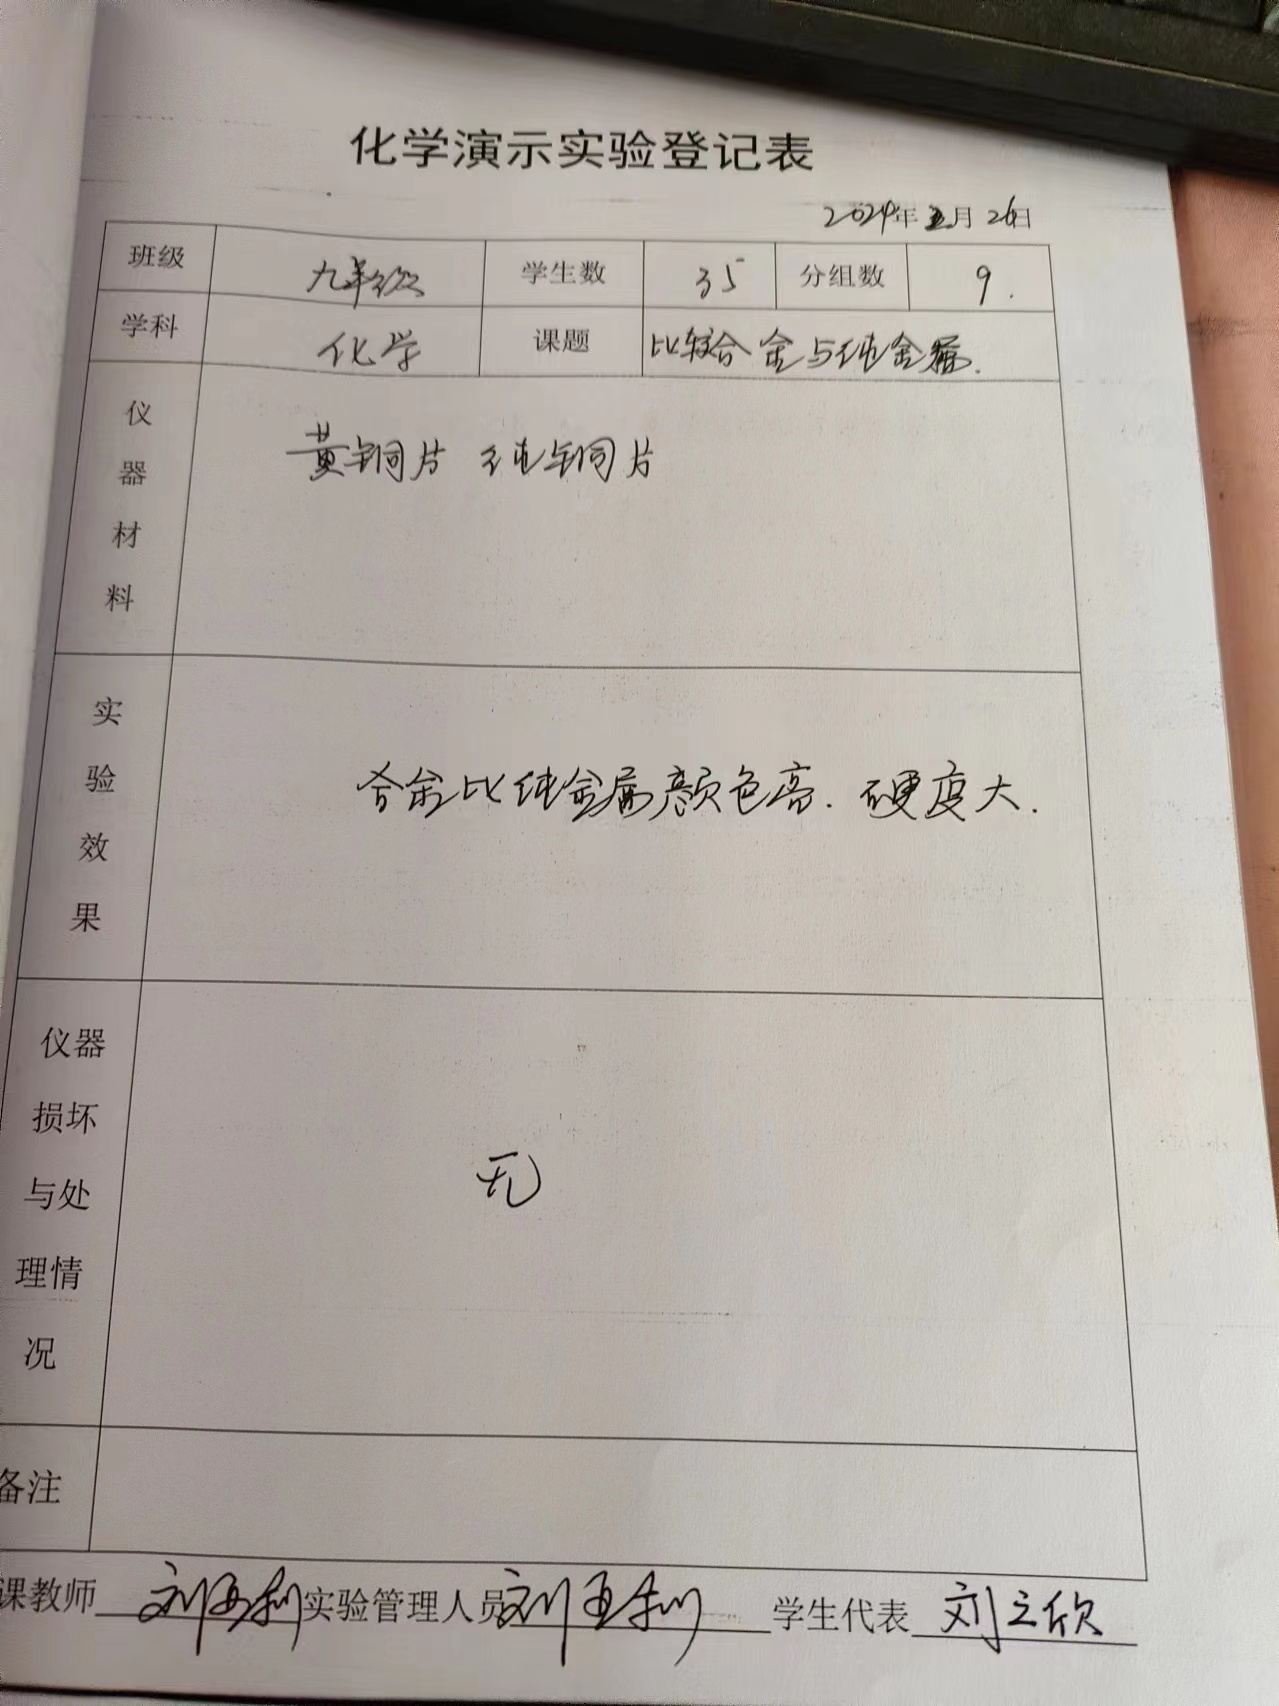 化学演示实验登记表
2024年 月 26日
班级 九年级 学生数 35 分组数 9.
学科 化学 课题 比较合金与纯金属.
仪器材料 黄铜片 纯铜片
实验效果 合金比纯金属颜色高. 硬度大.
仪器损坏与处理情况 无
备注
课教师 刘 利 实验管理人员 刘 利 学生代表 刘立欣